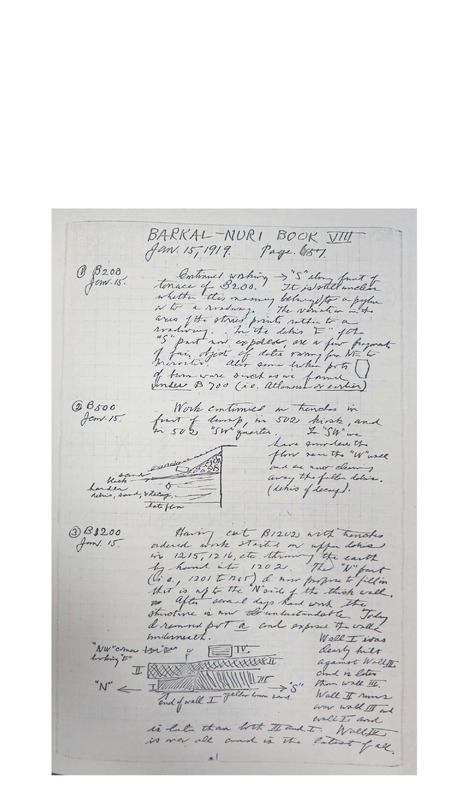 BARKAL-NURI BOOK VIII
Jan. 15, 1919. Page. 657
① B200
Jan. 15.
Continued working → "S" along front of
terrace of B200. It is still unclear
whether this masonry belongs to a pylon
or to a roadway. The variation in the
axes of the stones points rather to a
roadway. In the debris "E" of the
"S" part now exposed, are a few fragments
of fair object of dates varying from NE to
Meroitic. Also some broken pots
of brown ware such as we found
under B 700 (i.e. Atlanersa or earlier)
② B500
Jan. 15.
Work continued in trenches in
front of dump, in 502 kiosk, and
in 502 "SW" quarter. In "SW" we
have reached the
floor near the "W" wall
and are now clearing
away the fallen debris.
(debris of decay).
sand
black
harder
debris, sand, & decay.
late floor
③ B1200
Jan. 15.
Having cut B1202 with trenches
ordered work started on upper debris
in 1215, 1216, etc throwing the earth
by hand into 1202. The "N" part
(i.e., 1201 to 1205) I now propose to fill in
this is up to the "N" side of the thick wall.
After several days hard work the
structure is now understandable. Today
I removed part and exposed the walls
underneath.
"NW" corner
looking "E"
IV
II
II
III
I
"N" ← → "S"
End of wall I yellow sand
Wall I was
clearly built
against Wall III
and is later
than wall III.
Wall II runs
over wall III and
wall I and
is later than both III and I. Wall IV
is over all and is the latest of all.